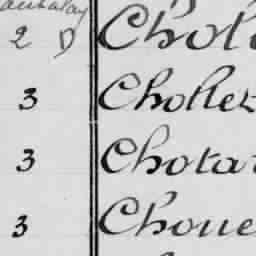 2 D Chol
3 Chollet
3 Chotar
3 Choue